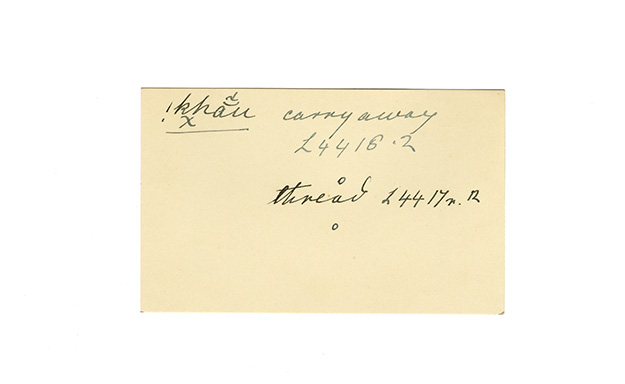 !khãu carry away
L 4416.2
thread L 4417r.12